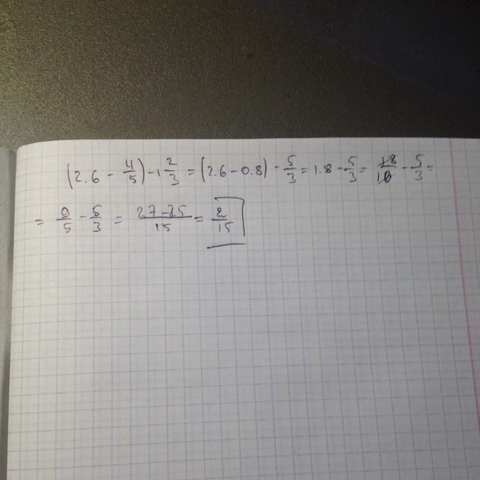 (2.6 - 4/5) - 1 2/3 = (2.6 - 0.8) - 5/3 = 1.8 - 5/3 = 18/10 - 5/3 =
= 9/5 - 5/3 = 27-25/15 = 2/15